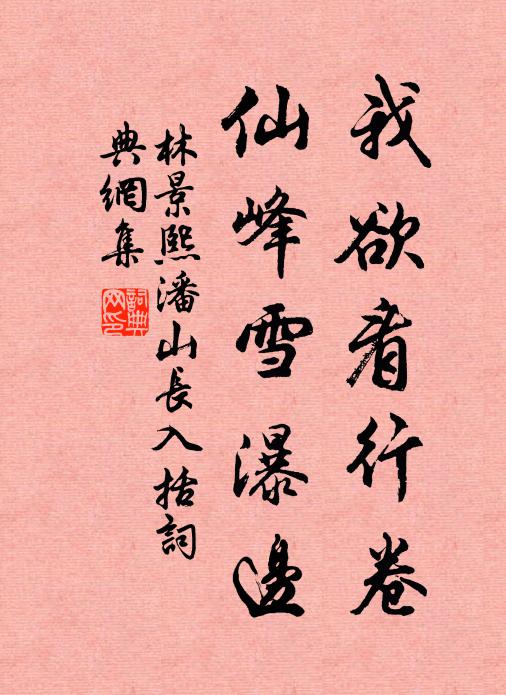 我欲看行卷
仙峰雪瀑邊
林景熙潘山長入括詞
典網集
詞典網印